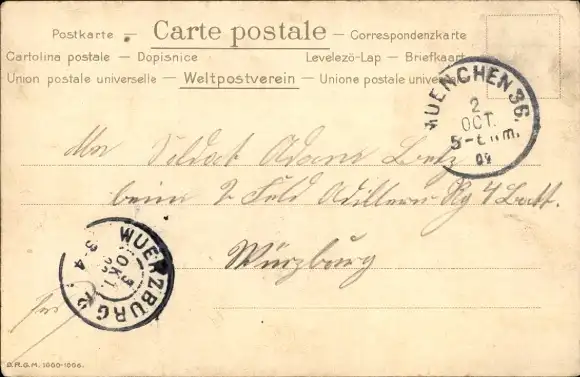 Postkarte — Carte postale — Correspondenzkarte
Cartolina postale — Dopisnice Levelező-Lap — Briefkaart
Union postale universelle — Weltpostverein — Unione postale unive
MUENCHEN 36.
2
OCT.
5-6 Nm.
Soldat Adam Betz
beim 2 Feld Adillerie Rg 4 Batt.
Würzburg
WUERZBURG
3
OKT
3-4
D.R.G.M. 1000-1006.